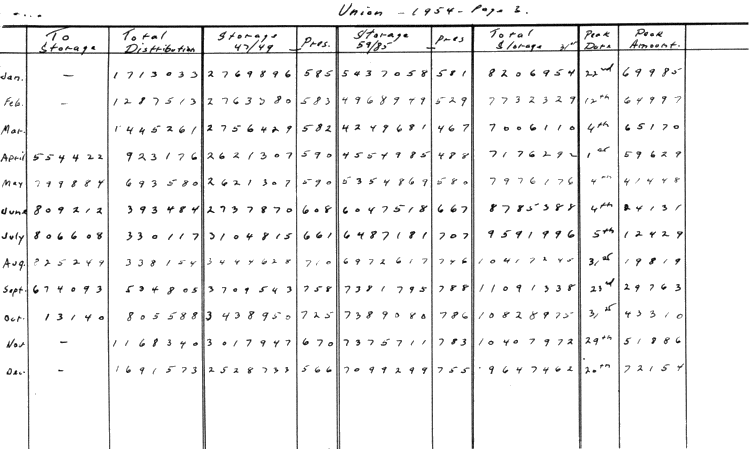 Union - 1954 - Page 3.
To Storage Total Distribution Storage 47/49 Pres. Storage 59/85 Pres Total Storage Peak Date Peak Amount.
Jan. - 1713033 2769896 585 5437058 581 8206954 22nd 69985
Feb. - 1287513 2763380 583 4968949 529 7732329 12th 64997
Mar. - 1445261 2756429 582 4249681 467 7006110 4th 65170
April 554422 923176 2621307 590 4554985 488 7176292 1st 59629
May 799884 693580 2621307 590 5354869 580 7976176 4th 41448
June 809212 393484 2737870 608 6047518 667 8785388 4th 24131
July 806608 330117 3104815 661 6487181 707 9591996 5th 12429
Aug. 825249 338154 3444628 710 6972617 746 10417245 31st 19819
Sept. 674093 534805 3709543 758 7381795 788 11091338 23rd 29763
Oct. 13140 805588 3438950 725 7389080 786 10828975 31st 43310
Nov - 1168340 3017947 670 7375711 783 10407972 29th 51886
Dec. - 1691573 2528733 566 7099299 755 9647462 20th 72154